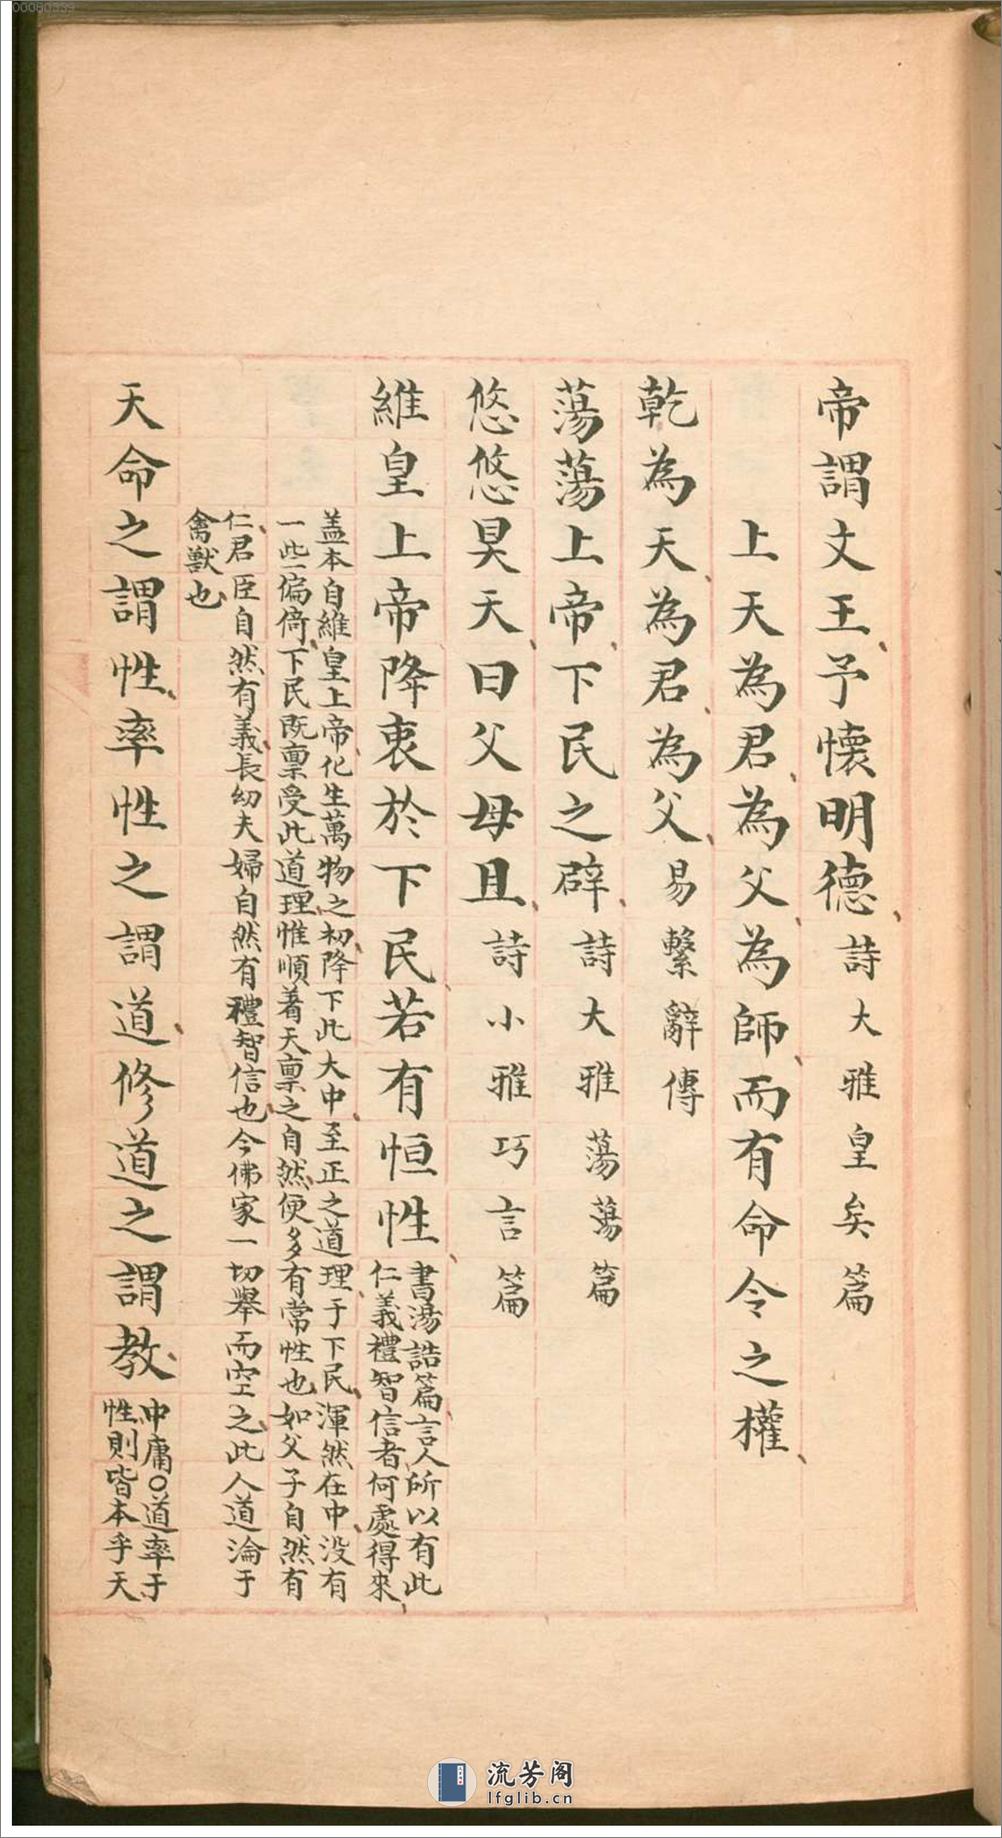 00080339
帝謂文王、予懷明德、詩大雅皇矣篇
上天為君、為父、為師、而有命令之權、
乾為天、為君、為父、易繫辭傳
蕩蕩上帝、下民之辟、詩大雅蕩蕩篇
悠悠昊天、曰父母且、詩小雅巧言篇
維皇上帝降衷於下民若有恒性、
書湯誥篇、言人所以有此
仁義禮智信者、何處得來、
蓋本自維皇上帝、化生萬物之初、降下此大中至正之道理、于下民、渾然在中、没有
一些偏倚、下民既稟受此道理、惟順着天稟之自然、便多有常性也、如父子自然有
仁、君臣自然有義、長幼夫婦自然有禮智信也、今佛家一切舉而空之、此人道淪于
禽獸也、
天命之謂性、率性之謂道、修道之謂教、
中庸〇道率于
性、則皆本乎天
流芳阁
lfglib.cn